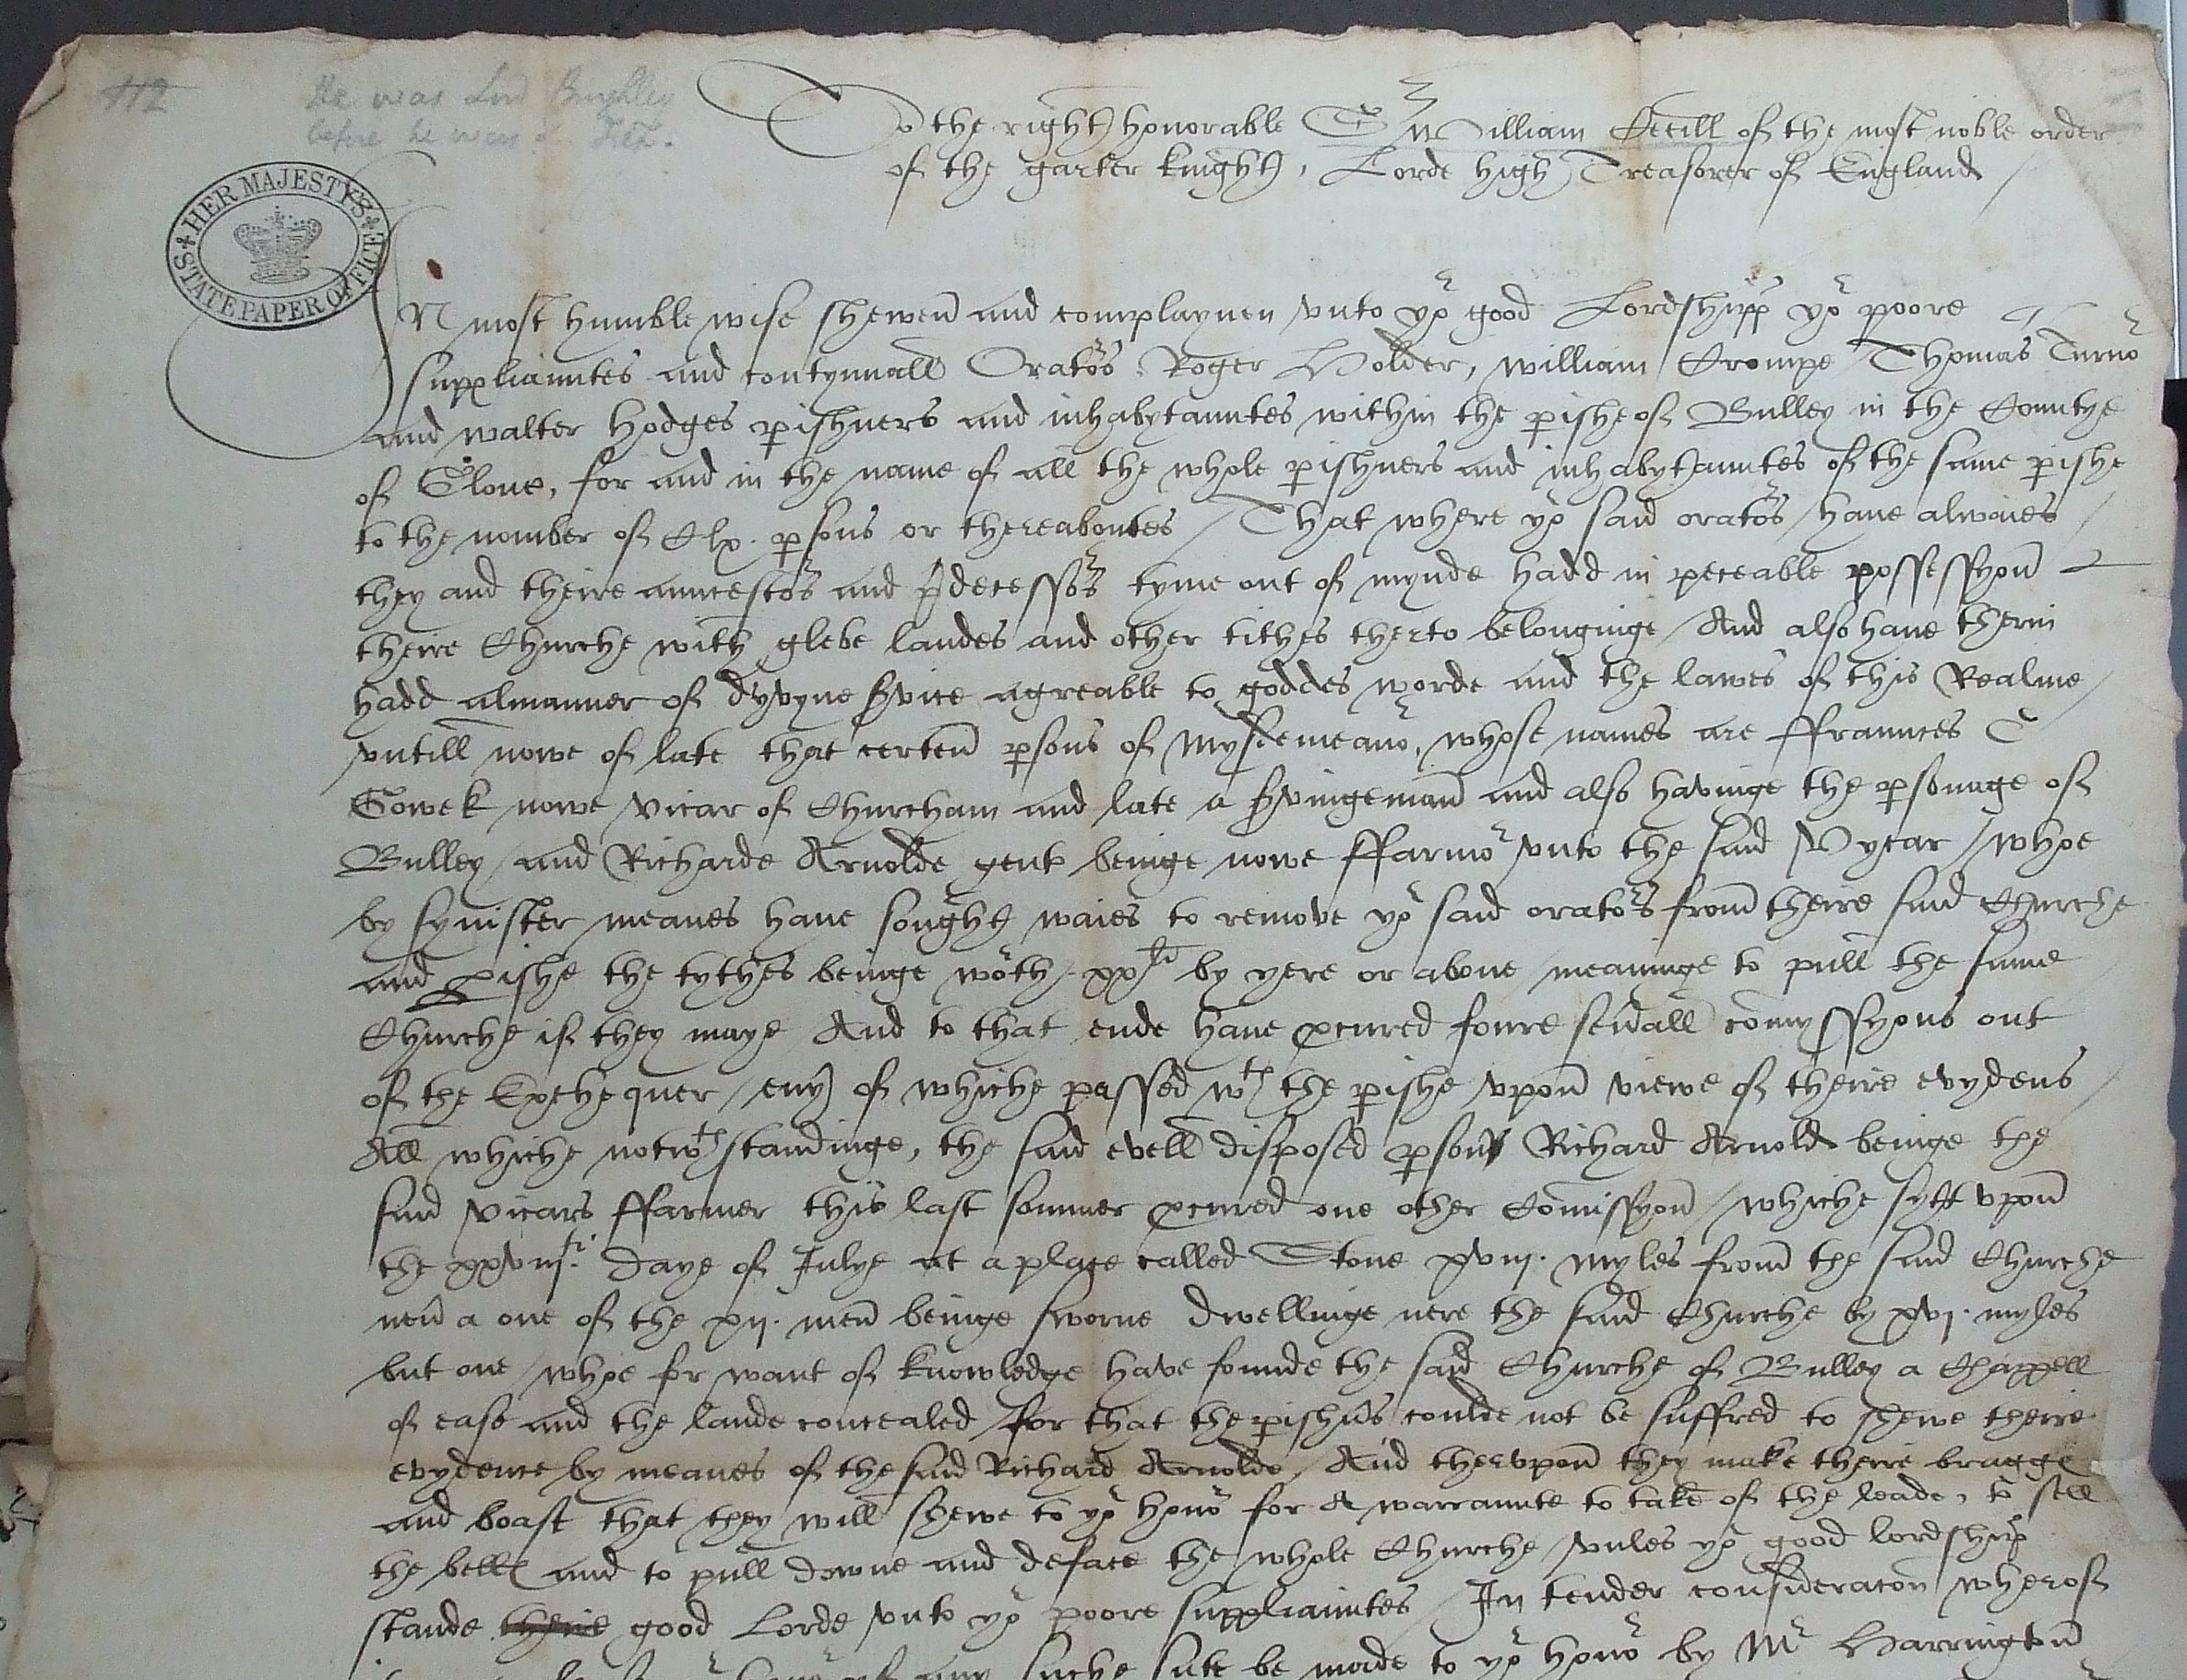 112
He was Lord Burghley
before he was L. Trea.
HER MAJESTY'S STATE PAPER OFFICE
To the right honorable Sr William Cecill of the most noble order
of the garter knight, Lorde high Treasorer of England /
IN most humble wise shewen and complaynen vnto yor good Lordshipp yor poore
suppliauntes and contynuall Orators Roger Holder, William Crompe Thomas Turnor
and walter Hodges pishners and inhabytauntes within the pishe of Bulley in the Countye
of Glouc, for and in the name of all the whole pishners and inhabytauntes of the same pishe
to the nomber of Clx. psons or thereaboutes / That where yor said orators / haue alwaies /
they and theire auncestors and pdecessors tyme out of mynde hadd in peceable possessyon
theire Churche with glebe landes and other tithes therto belonginge / And also haue therin
hadd almanner of dyvyne svice agreable to goddes worde and the lawes of this Realme /
vntill nowe of late that certen psons of mysdemeanor, whose names are ffraunces
Gowek nowe vicar of Churcham and late a svingeman and also havinge the psonage of
Bulley / and Richarde Arnolde gent beinge nowe ffarmor vnto the said Vycar / whoe
by synister meanes haue sought waies to remove yor said orators from theire said Churche
and pishe the tythes beinge woth xxli by yere or aboue / meaninge to pull the same
Churche if they maye And to that ende haue pcured foure seuall comyssyons out
of the Exchequer / euy of whiche passed wth the pishe vpon viewe of theire evydens /
All whiche notwthstandinge, the said evell disposed pson Richard Arnold beinge the
said vicars ffarmer this last sommer pcured one other Comissyon / whiche sytt vpon
the xxviijti. daye of Julye at a place called Stone xviij. myles from the said Churche
neu a one of the xij. men beinge sworne dwellinge nere the said Churche by xvj. myles
but one / whoe for want of knowledge have founde the said Churche of Bulley a Chappell
of ease and the lande concealed / for that the pishns coulde not be suffred to shewe theire
evydence by meanes of the said Richard Arnolde / And thervpon they make theire bragge
and boast that they will shewe to yor honor for A warraunte to take of the leade, to sell
the bells and to pull downe and deface the whole Churche / vnles yor good lordship
stande theire good Lorde vnto yor poore suppliauntes / In tender consideracon wherof
any suche sute be made to yor honor by Mr Harrington